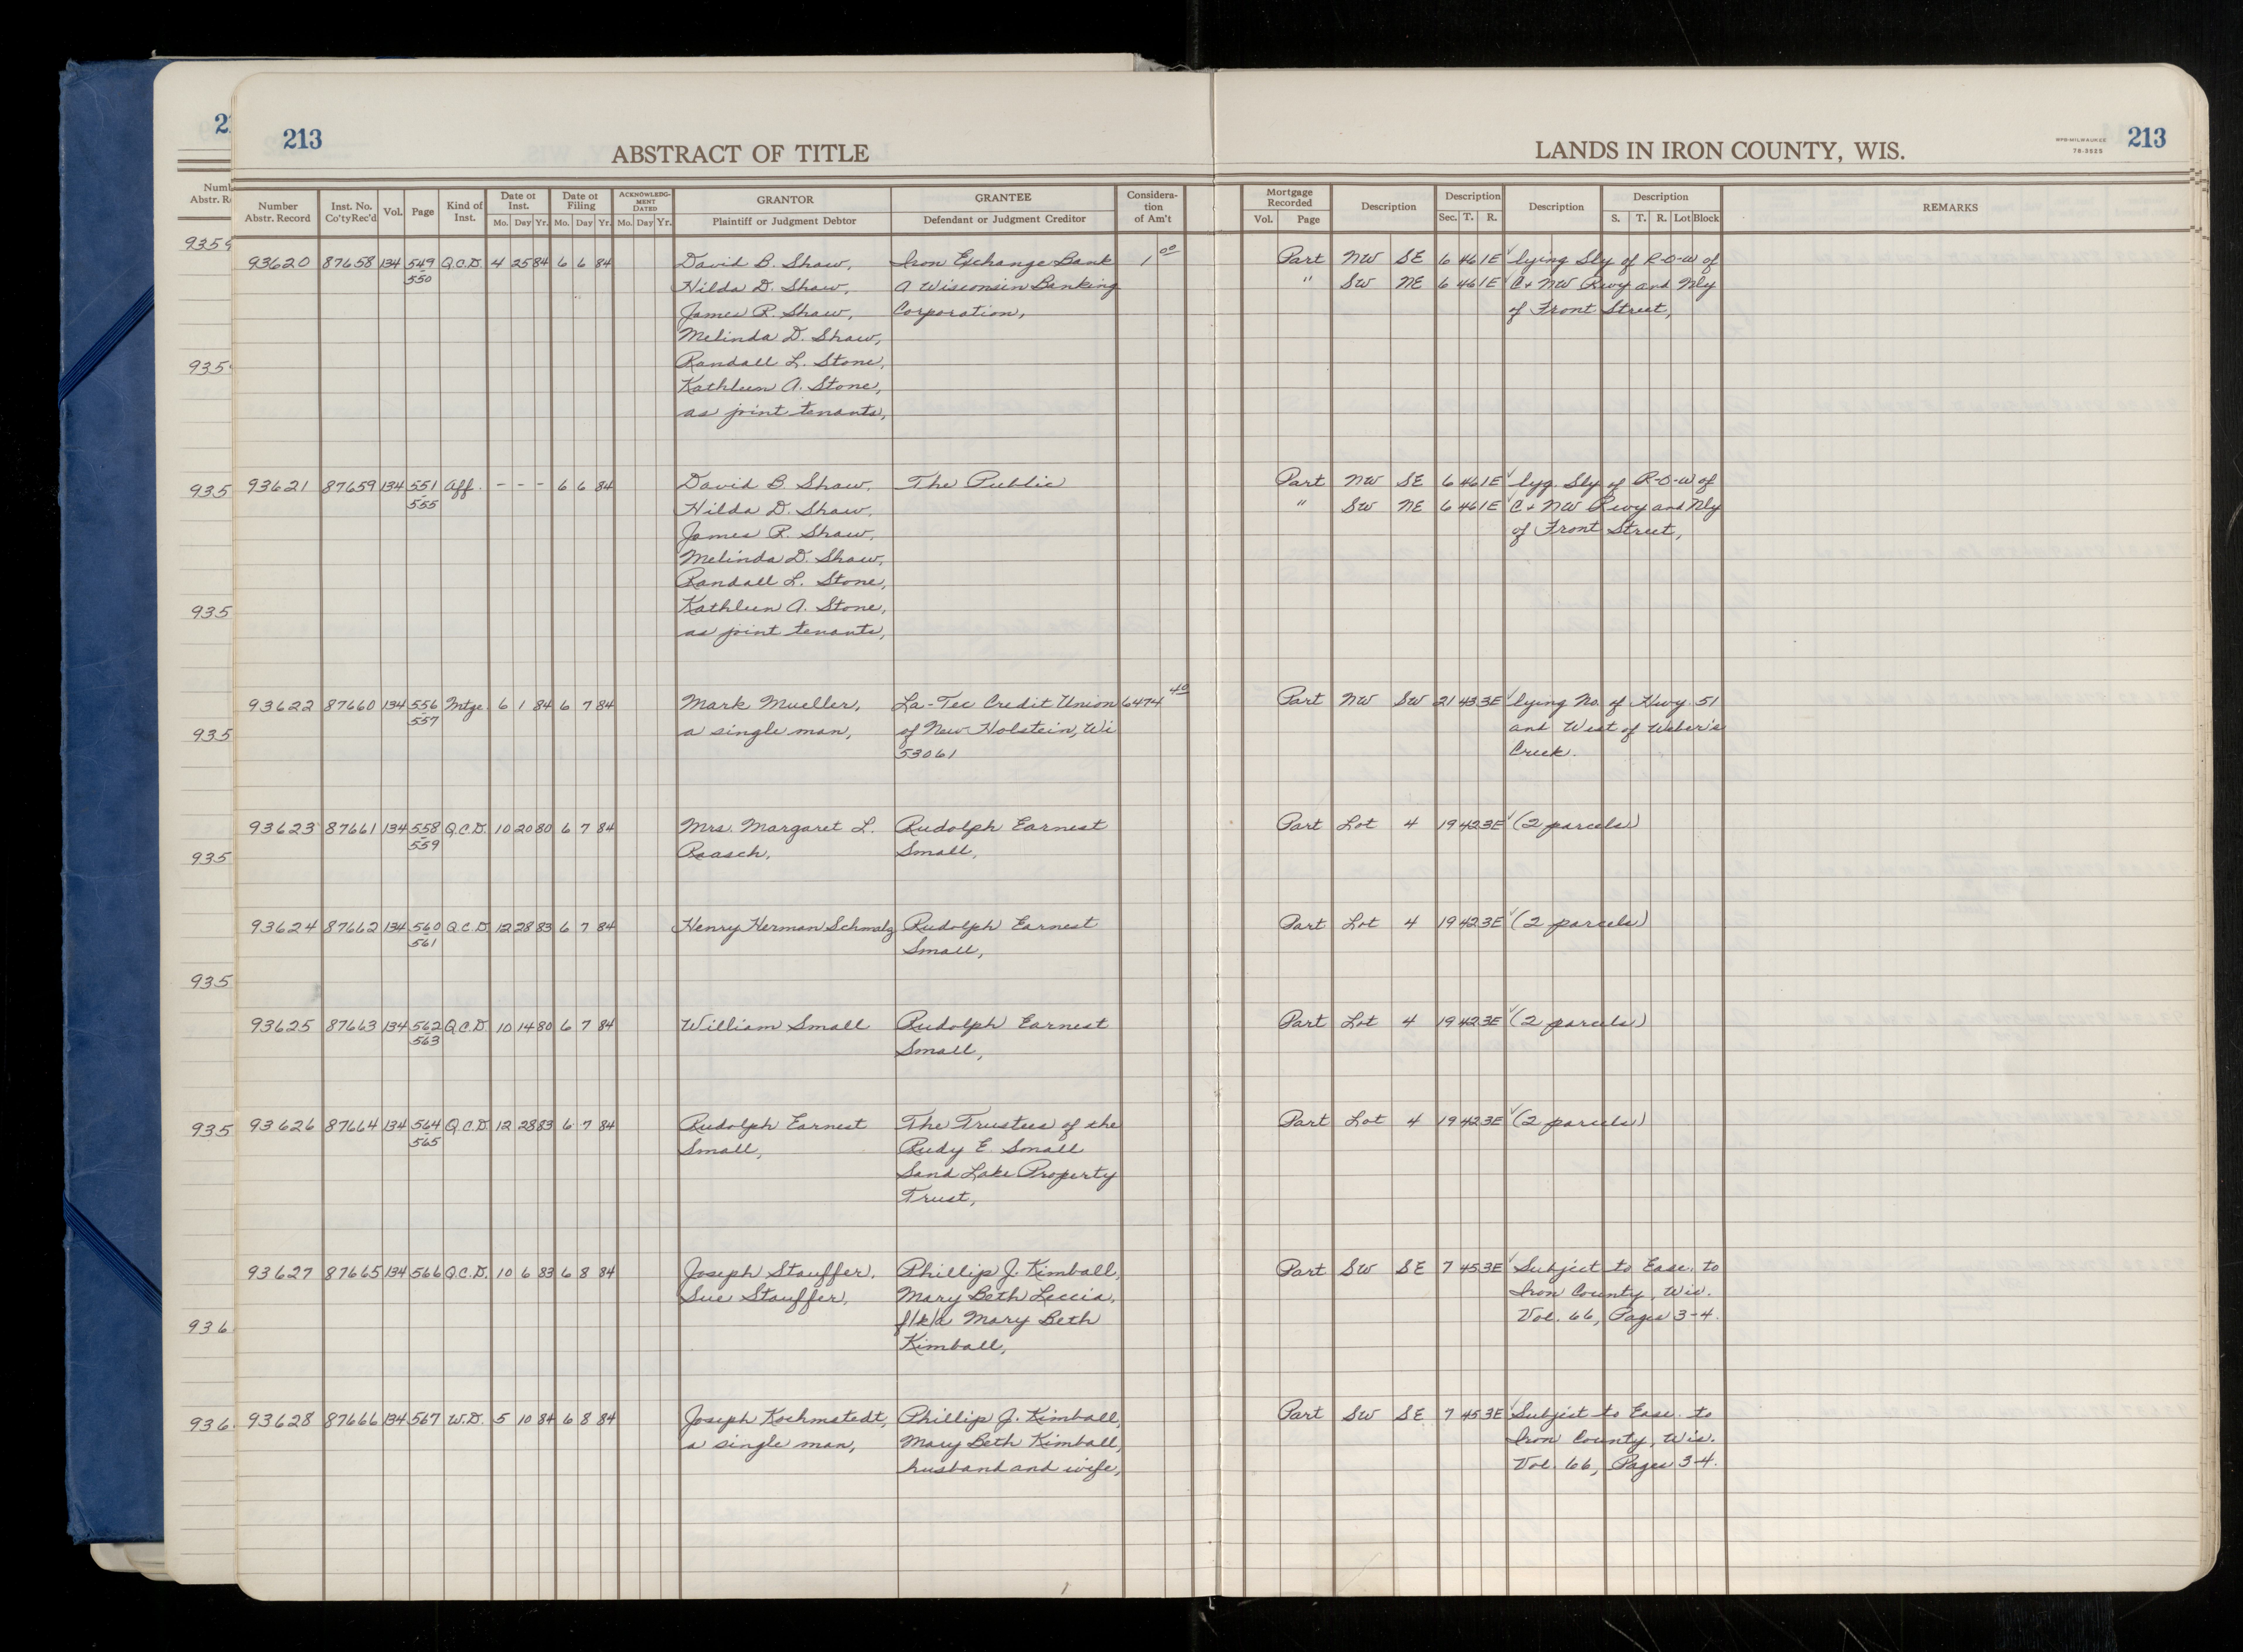 213
ABSTRACT OF TITLE
LANDS IN IRON COUNTY, WIS.
MPB-MILWAUKEE
76-3525
213
Number Abstr. Record | Inst. No. Co'ty Rec'd | Vol. | Page | Kind of Inst. | Date of Inst. Mo. Day Yr. | Date of Filing Mo. Day Yr. | ACKNOWLEDGMENT DATED Mo. Day Yr. | GRANTOR Plaintiff or Judgment Debtor | GRANTEE Defendant or Judgment Creditor | Consideration of Am't | Mortgage Recorded Vol. Page | Description | Description Sec. T. R. | Description | Description S. T. R. Lot Block | REMARKS
93620 87658 134 549 Q.C.D. 4 25 84 6 6 84 David B. Shaw, Iron Exchange Bank 1 00 Part NW SE 6 46 1E ✓ lying Sly of R-O-W of
550 Hilda D. Shaw, A Wisconsin Banking " SW NE 6 46 1E ✓ C + NW Rwy and Nly
James R. Shaw, Corporation, of Front Street,
Melinda D. Shaw,
Randall L. Stone,
Kathleen A. Stone,
as joint tenants,
93621 87659 134 551 Aff. - - - 6 6 84 David B. Shaw, The Public Part NW SE 6 46 1E ✓ lyg. Sly of R-O-W of
555 Hilda D. Shaw, " SW NE 6 46 1E ✓ C + NW Rwy and Nly
James R. Shaw, of Front Street,
Melinda D. Shaw,
Randall L. Stone,
Kathleen A. Stone,
as joint tenants,
93622 87660 134 556 Mtge. 6 1 84 6 7 84 Mark Mueller, La-Tec Credit Union 6474 40 Part NW SW 21 43 3E ✓ lying No. of Hwy. 51
557 a single man, of New Holstein, Wi and West of Weber's
53061 Creek.
93623 87661 134 558 Q.C.D. 10 20 80 6 7 84 Mrs. Margaret L. Rudolph Earnest Part Lot 4 19 42 3E ✓ (2 parcels)
559 Raasch, Small,
93624 87662 134 560 Q.C.D. 12 28 83 6 7 84 Henry Herman Schmalz Rudolph Earnest Part Lot 4 19 42 3E ✓ (2 parcels)
561 Small,
93625 87663 134 562 Q.C.D. 10 14 80 6 7 84 William Small Rudolph Earnest Part Lot 4 19 42 3E ✓ (2 parcels)
563 Small,
93626 87664 134 564 Q.C.D. 12 28 83 6 7 84 Rudolph Earnest The Trustees of the Part Lot 4 19 42 3E ✓ (2 parcels)
565 Small, Rudy E. Small
Sand Lake Property
Trust,
93627 87665 134 566 Q.C.D. 10 6 83 6 8 84 Joseph Stauffer, Phillip J. Kimball, Part SW SE 7 45 3E ✓ Subject to Ease. to
Sue Stauffer, Mary Beth Leccia, Iron County, Wis.
f/k/a Mary Beth Vol. 66, Pages 3-4.
Kimball,
93628 87666 134 567 W.D. 5 10 84 6 8 84 Joseph Kochmstedt, Phillip J. Kimball, Part SW SE 7 45 3E ✓ Subject to Ease. to
a single man, Mary Beth Kimball, Iron County, Wis.
husband and wife, Vol. 66, Pages 3-4.